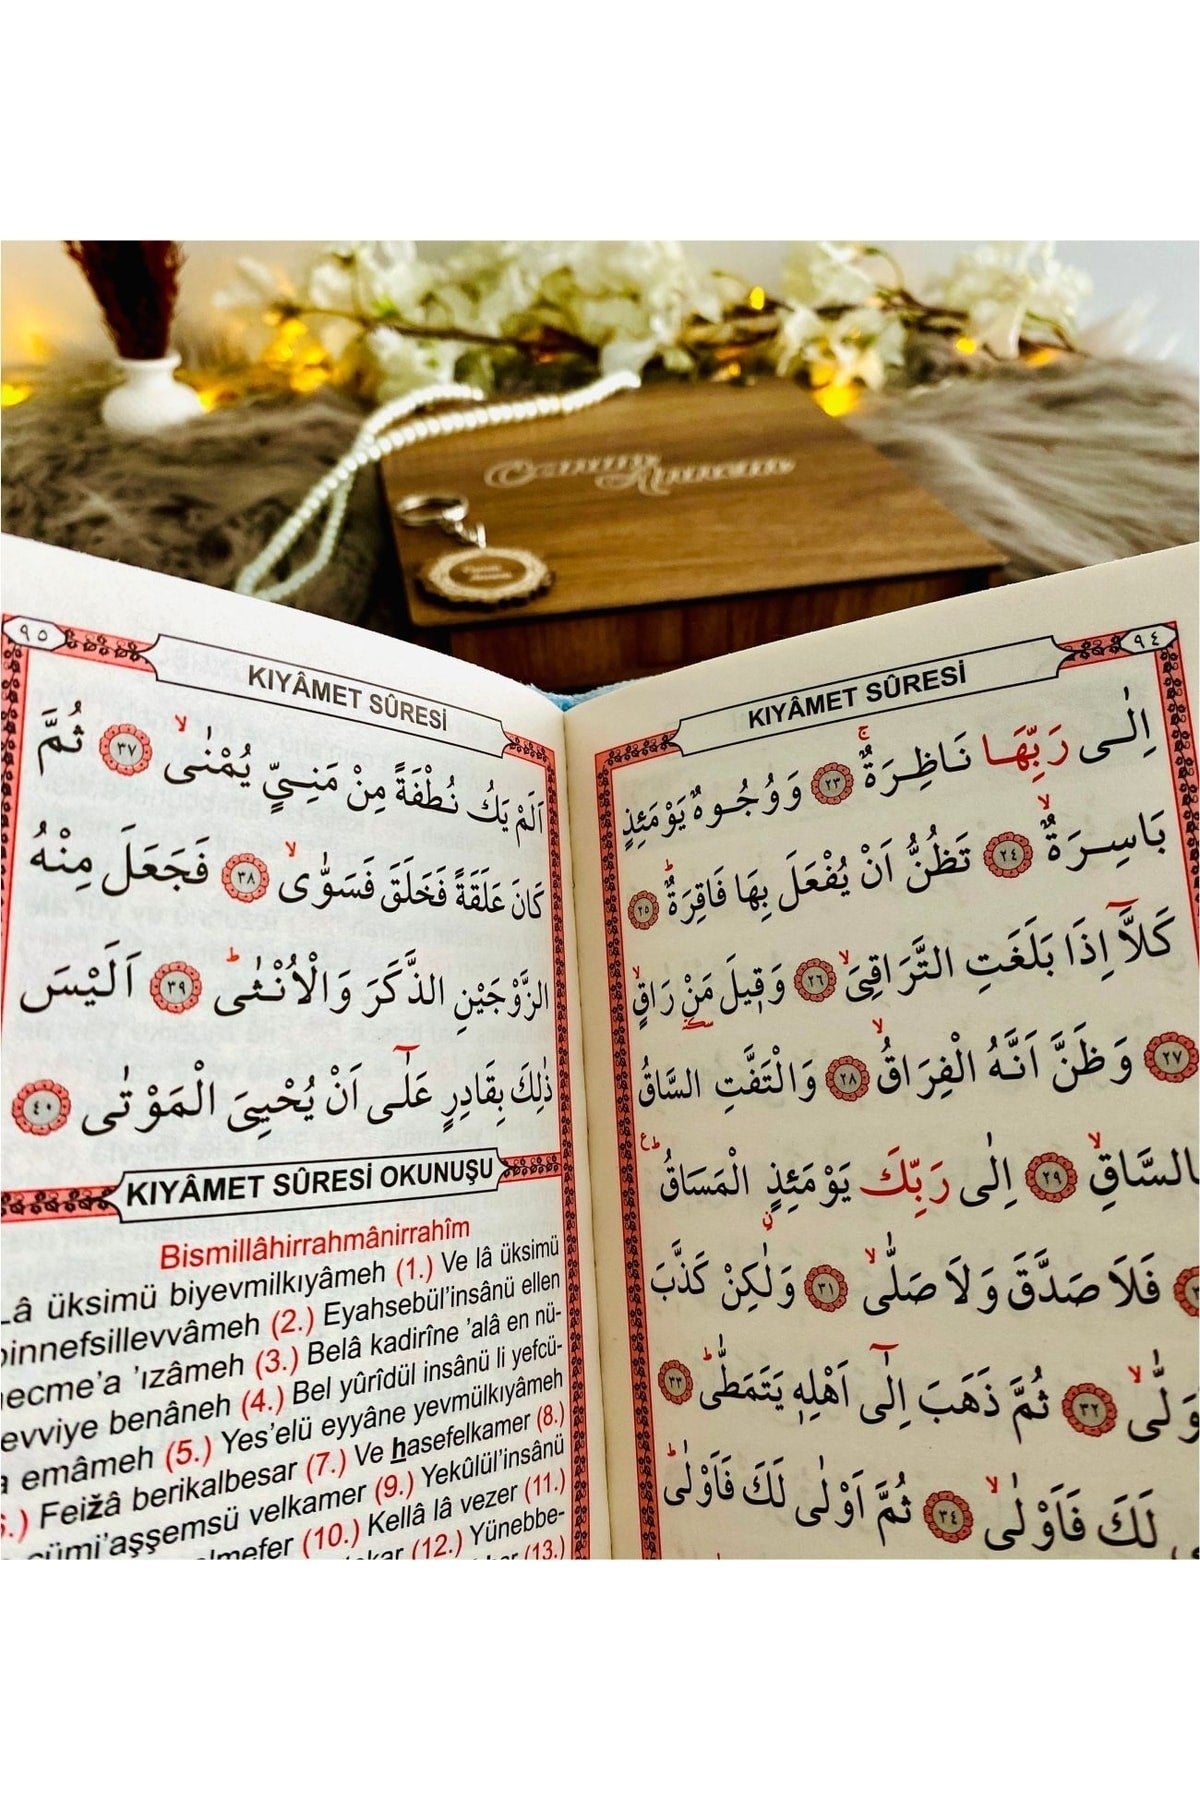 ٩٤
KIYÂMET SÛRESİ
اِلٰى رَبِّهَا نَاظِرَةٌۚ ﴿٢٣﴾ وَوُجُوهٌ يَوْمَئِذٍ
بَاسِرَةٌۙ ﴿٢٤﴾ تَظُنُّ اَنْ يُفْعَلَ بِهَا فَاقِرَةٌۜ ﴿٢٥﴾
كَلَّٓا اِذَا بَلَغَتِ التَّرَاقِيَۙ ﴿٢٦﴾ وَق۪يلَ مَنْ۔ رَاقٍۙ
﴿٢٧﴾ وَظَنَّ اَنَّهُ الْفِرَاقُۙ ﴿٢٨﴾ وَالْتَفَّتِ السَّاقُ
بِالسَّاقِۙ ﴿٢٩﴾ اِلٰى رَبِّكَ يَوْمَئِذٍ ۨالْمَسَاقُۜ
فَلَا صَدَّقَ وَلَا صَلّٰىۙ ﴿٣١﴾ وَلٰكِنْ كَذَّبَ
وَلّٰىۙ ﴿٣٢﴾ ثُمَّ ذَهَبَ اِلٰٓى اَهْلِه۪ يَتَمَطّٰىۜ ﴿٣٣﴾
لَكَ فَاَوْلٰىۙ ﴿٣٤﴾ ثُمَّ اَوْلٰى لَكَ فَاَوْلٰىۜ
٩٥
KIYÂMET SÛRESİ
اَلَمْ يَكُ نُطْفَةً مِنْ مَنِيٍّ يُمْنٰىۙ ﴿٣٧﴾ ثُمَّ
كَانَ عَلَقَةً فَخَلَقَ فَسَوّٰىۙ ﴿٣٨﴾ فَجَعَلَ مِنْهُ
الزَّوْجَيْنِ الذَّكَرَ وَالْاُنْثٰىۜ ﴿٣٩﴾ اَلَيْسَ
ذٰلِكَ بِقَادِرٍ عَلٰٓى اَنْ يُحْيِيَ الْمَوْتٰى ﴿٤٠﴾
KIYÂMET SÛRESİ OKUNUŞU
Bismillâhirrahmânirrahîm
Lâ üksimü biyevmilkıyâmeh (1.) Ve lâ üksimü
binnefsillevvâmeh (2.) Eyahsebül’insânü ellen
necme’a ’ızâmeh (3.) Belâ kadirîne ’alâ en nü-
evviye benâneh (4.) Bel yûrîdül insânü li yefcü-
a emâmeh (5.) Yes’elü eyyâne yevmülkıyâmeh
Feižâ berikalbesar (7.) Ve hasefelkamer (8.)
cümi’aşşemsü velkamer (9.) Yekûlül’insânü
elmefer (10.) Kellâ lâ vezer (11.)
(12.) Yünebbe-
(13.)